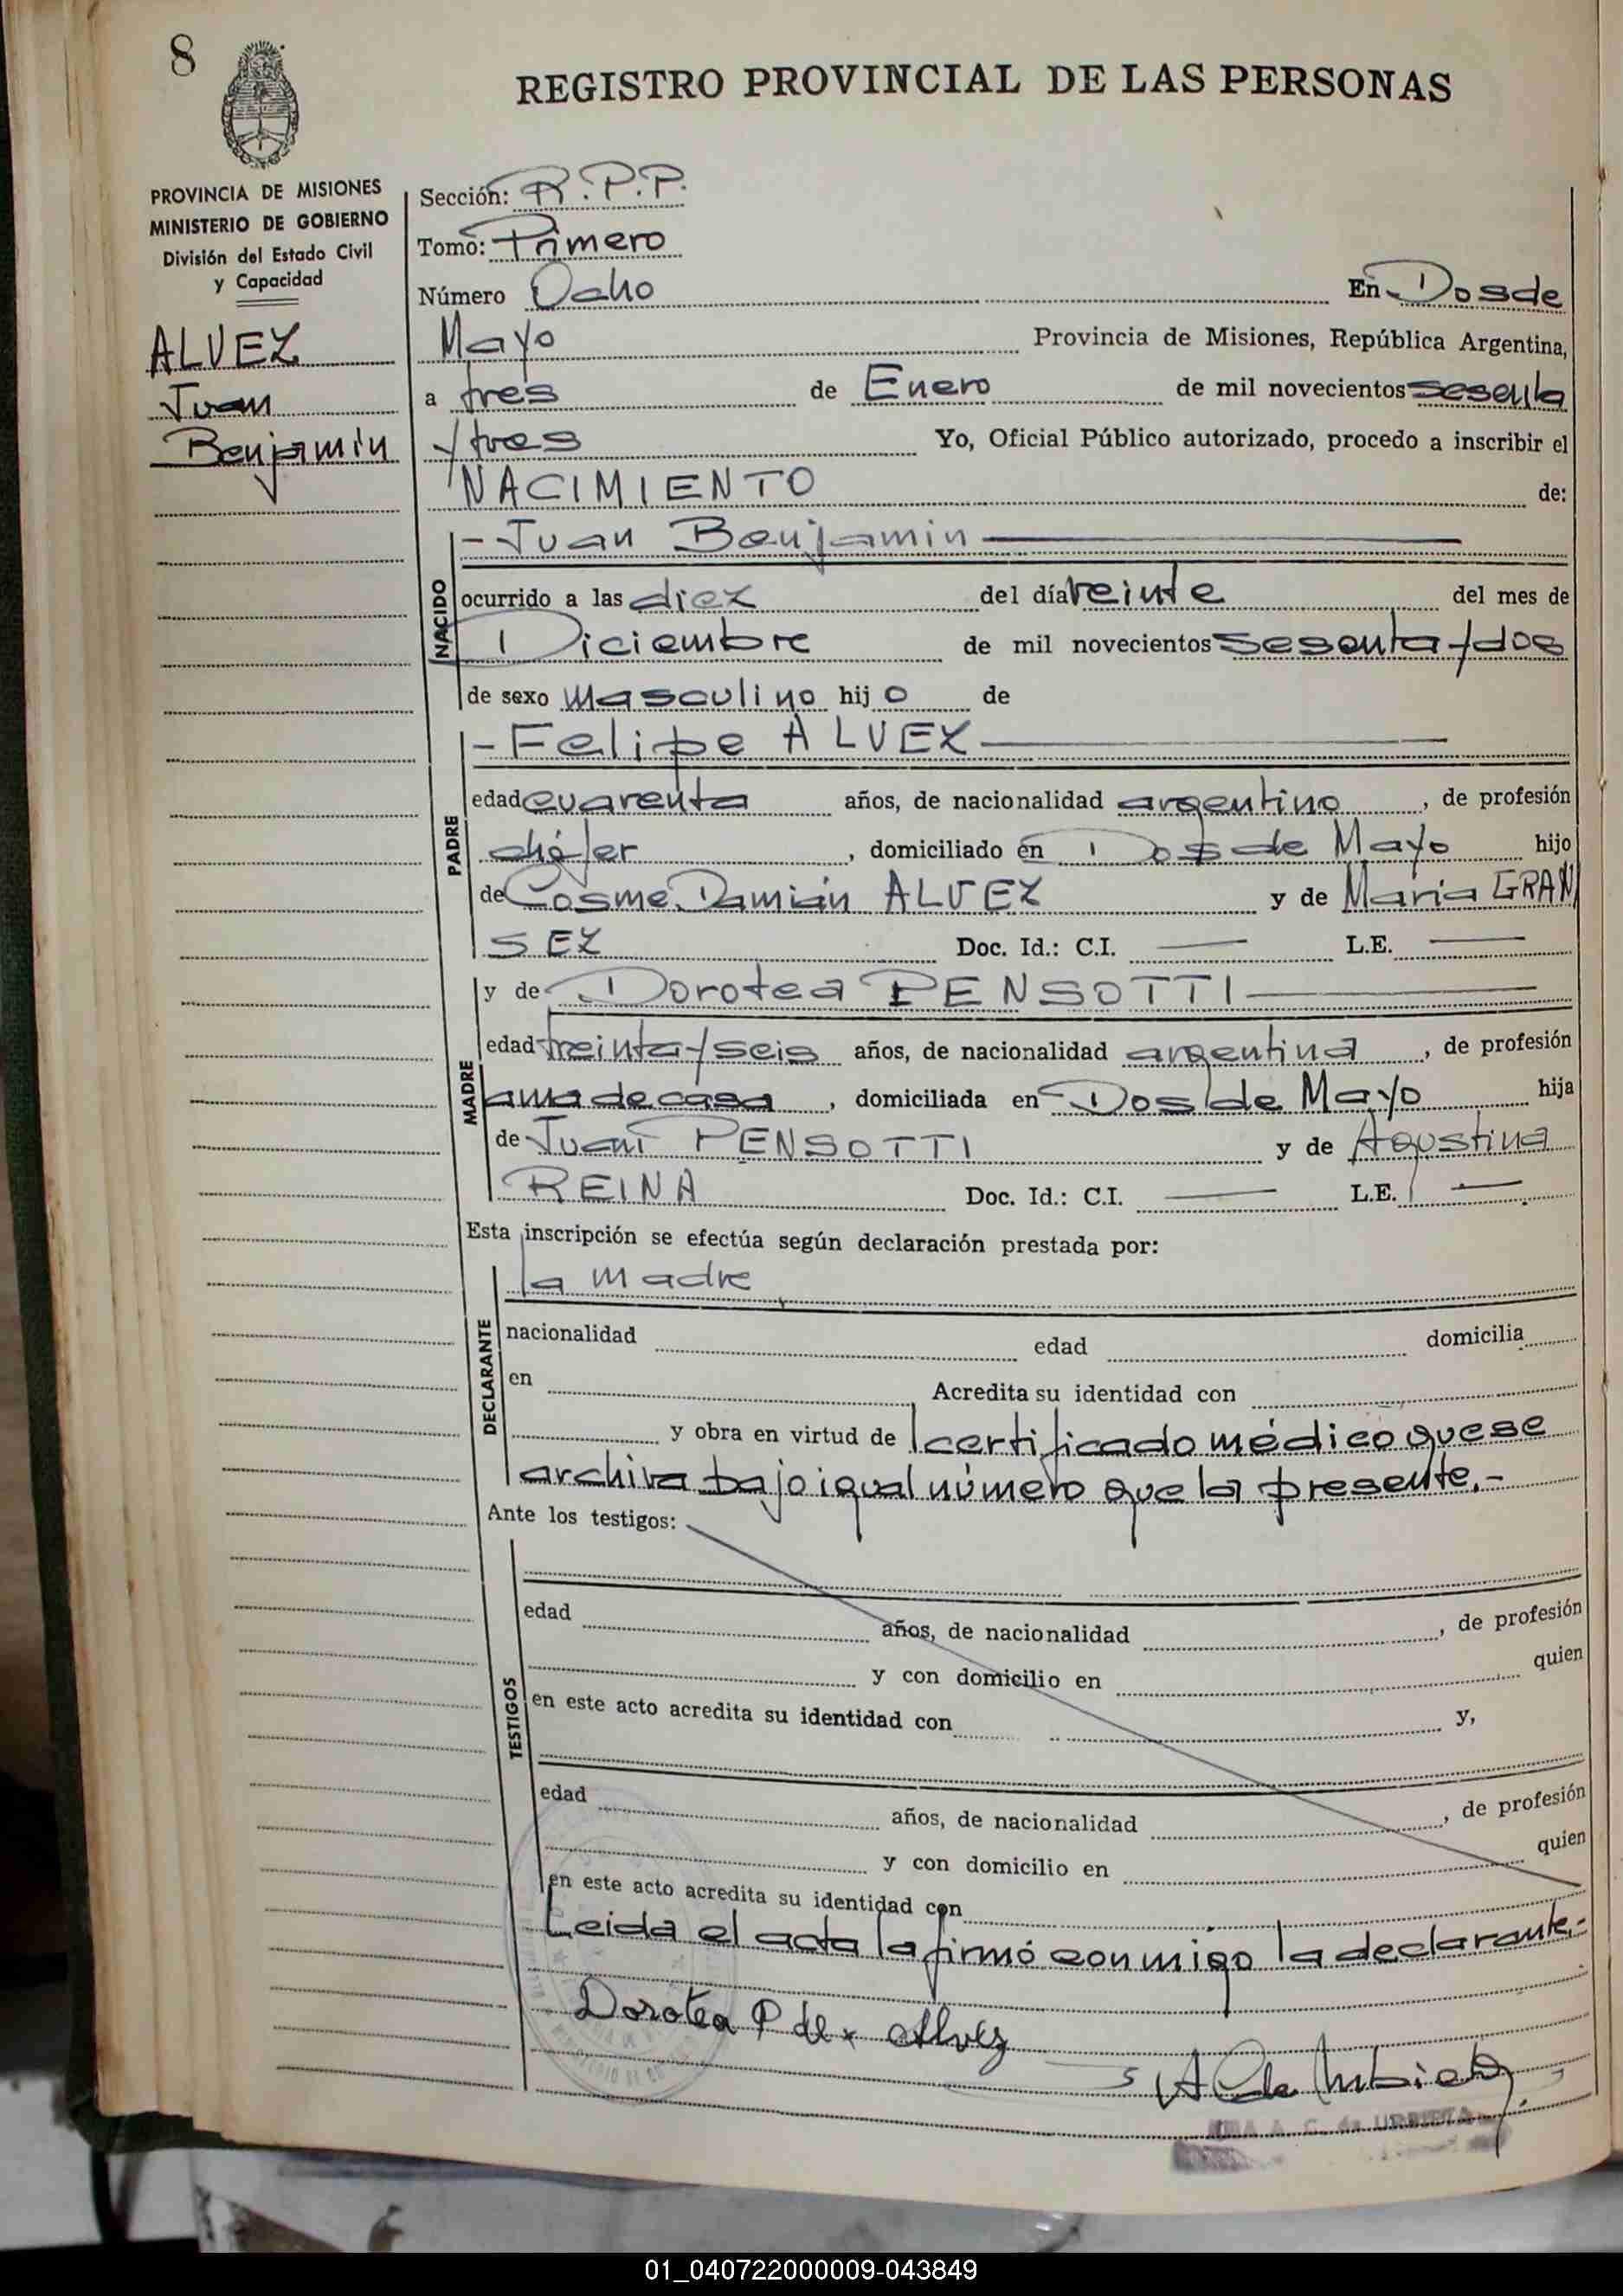 8
REGISTRO PROVINCIAL DE LAS PERSONAS
PROVINCIA DE MISIONES
MINISTERIO DE GOBIERNO
División del Estado Civil
y Capacidad
ALVEZ
Juan
Benjamin
Sección: R.P.P.
Tomo: Primero
Número Ocho En Dos de
Mayo Provincia de Misiones, República Argentina,
a tres de Enero de mil novecientos sesenta
y tres Yo, Oficial Público autorizado, procedo a inscribir el
NACIMIENTO de:
NACIDO
- Juan Benjamin
ocurrido a las diez del día veinte del mes de
Diciembre de mil novecientos sesenta y dos
de sexo masculino hijo de
PADRE
- Felipe ALVEZ
edad cuarenta años, de nacionalidad argentino, de profesión
chófer, domiciliado en Dos de Mayo hijo
de Cosme Damián ALVEZ y de Maria GRAN
SEZ Doc. Id.: C.I. L.E.
MADRE
y de Dorotea PENSOTTI
edad treinta y seis años, de nacionalidad argentina, de profesión
ama de casa, domiciliada en Dos de Mayo hija
de Juan PENSOTTI y de Agustina
REINA Doc. Id.: C.I. L.E.
Esta inscripción se efectúa según declaración prestada por:
DECLARANTE
la madre
nacionalidad edad domicilia
en Acredita su identidad con
y obra en virtud de certificado médico que se
archiva bajo igual número que la presente.-
Ante los testigos:
TESTIGOS
edad años, de nacionalidad , de profesión
y con domicilio en quien
en este acto acredita su identidad con y,
edad años, de nacionalidad , de profesión
y con domicilio en quien
en este acto acredita su identidad con
Leida el acta la firmó conmigo la declarante.-
Dorotea P de Alvez
A. C. de URBIETA
01_040722000009-043849